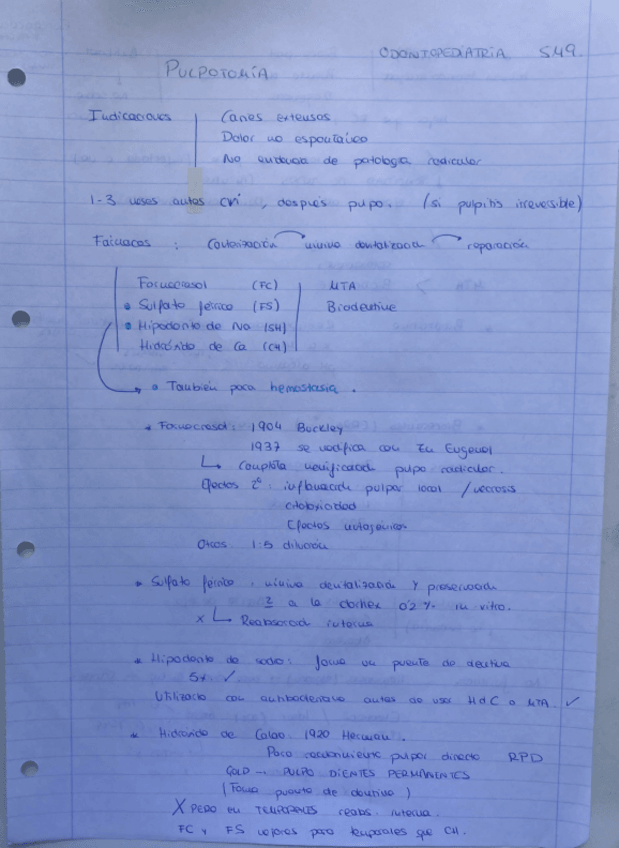 ODONTOPEDIATRIA S49.
PULPOTOMÍA
Indicaciones
Caries extensas
Dolor no espontáneo
No evidencia de patología radicular
1-3 meses antes CVI, después pulpo. (si pulpitis irreversible)
Fármacos: Cauterización mínima dentalización reparación
Formocresol (FC) MTA
Sulfato férrico (FS) Biodentine
Hipoclorito de Na (SH)
Hidróxido de Ca (CH)
También para hemostasia.
Formocresol: 1904 Buckley
1937 se modifica con Zn Eugenol
Completa momificación pulpa radicular.
Efectos 2º: inflamación pulpar local / necrosis
citotoxicidad
Efectos mutagénicos
Otros 1:5 dilución
Sulfato férrico: mínima dentalización y preservación
a la clorhex 0'2% in vitro.
X Reabsorción interna
Hipoclorito de sodio: forma un puente de dentina
5% ✓
Utilizarlo con antibacteriano antes de usar HdC o MTA ✓
Hidróxido de Calcio: 1920 Herman.
Para recubrimiento pulpar directo RPD
GOLD → PULPO DIENTES PERMANENTES
(Forma puente de dentina)
X PERO en TEMPORALES reabs. interna.
FC y FS mejores para temporales que CH.